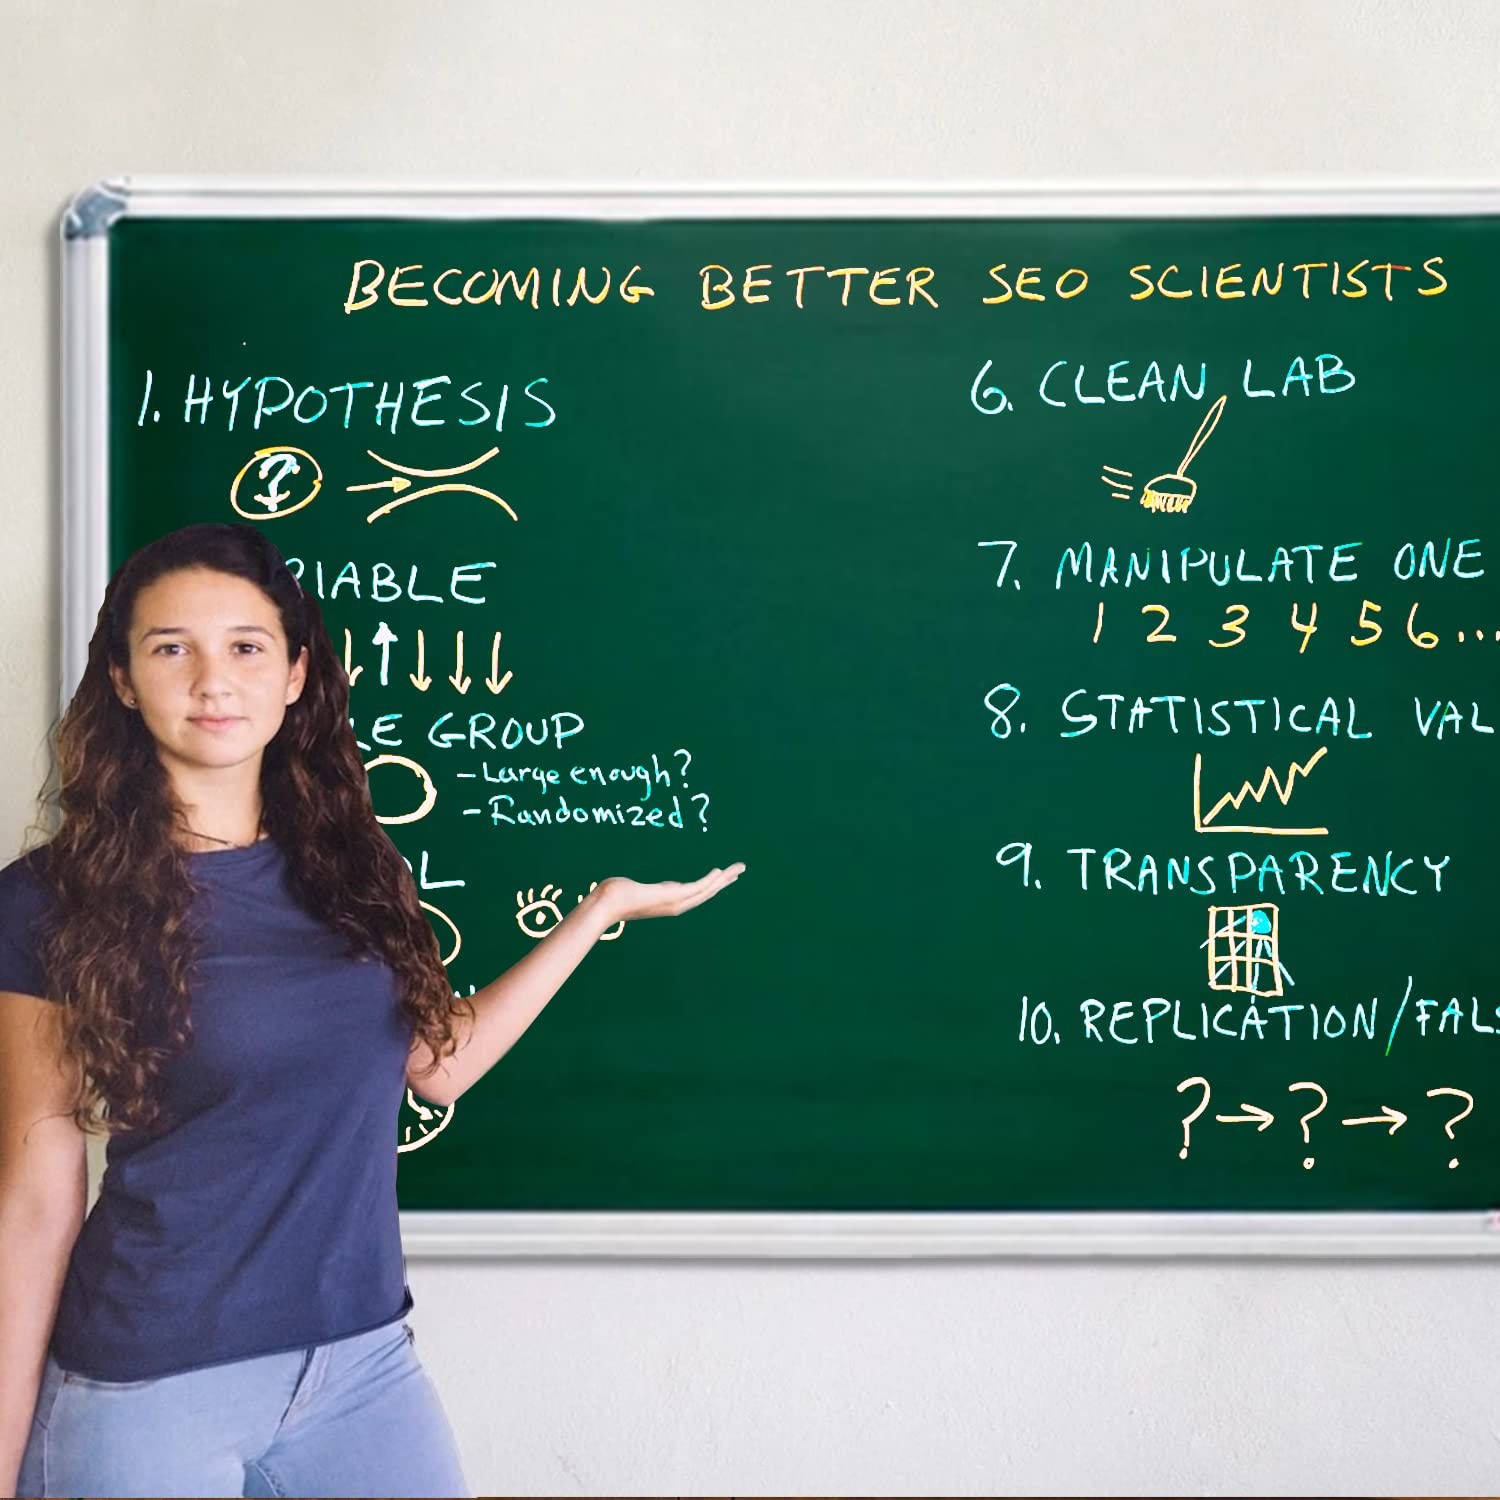 BECOMING BETTER SEO SCIENTISTS
1. HYPOTHESIS
?
RIABLE
LE GROUP
- Large enough?
- Randomized?
OL
6. CLEAN LAB
7. MANIPULATE ONE
1 2 3 4 5 6...
8. STATISTICAL VAL
9. TRANSPARENCY
10. REPLICATION/FALS
? → ? → ?